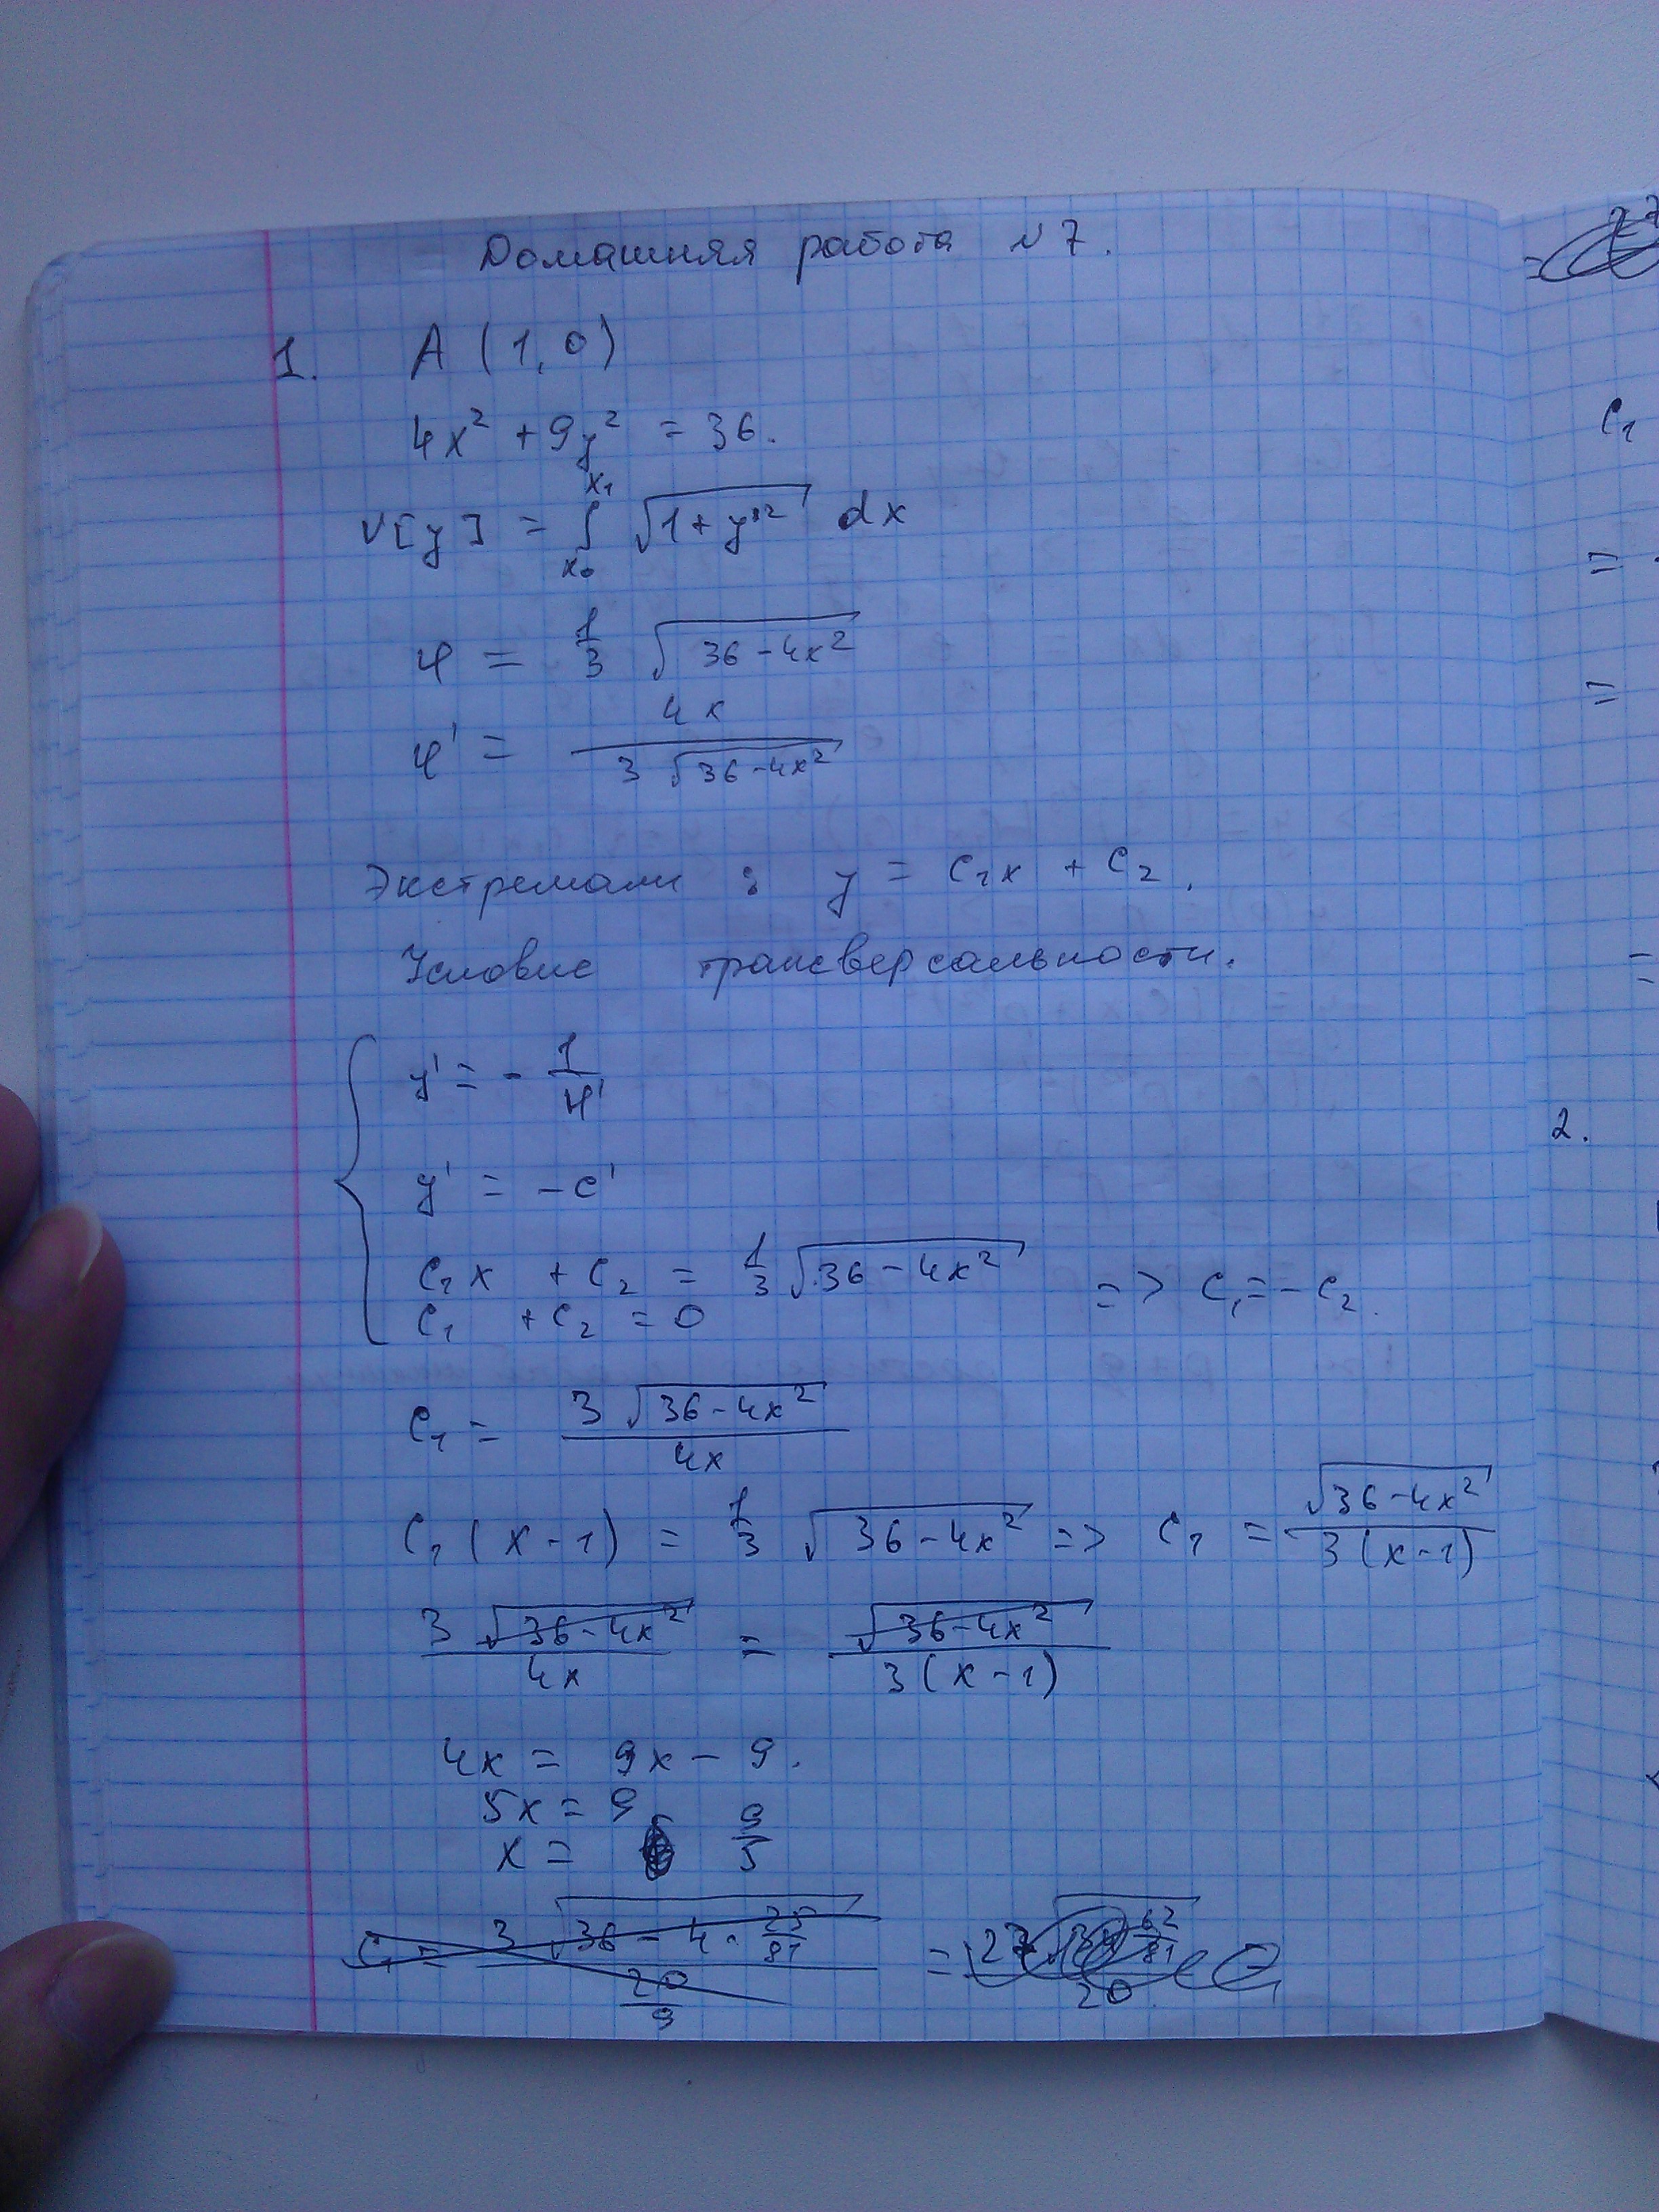 Домашняя работа №7.
1. A (1,0)
4x² + 9y² = 36.
V[y] = ∫_{x₀}^{x₁} √(1+y'²) dx
φ = 1/3 √(36-4x²)
φ' = 4x / (3√(36-4x²))
Экстремали : y = C₁x + C₂.
Условие трансверсальности.
y' = - 1/φ'
y' = -c'
C₁x + C₂ = 1/3 √(36-4x²)
C₁ + C₂ = 0 => C₁ = -C₂.
C₁ = 3√(36-4x²) / 4x
C₁(x-1) = 1/3 √(36-4x²) => C₁ = √(36-4x²) / 3(x-1)
3√(36-4x²) / 4x = √(36-4x²) / 3(x-1)
4x = 9x - 9.
5x = 9
x = 9/5
C₁ = 3√(36-4·25/81) / (20/9) =
C₁
=
=
=
2.